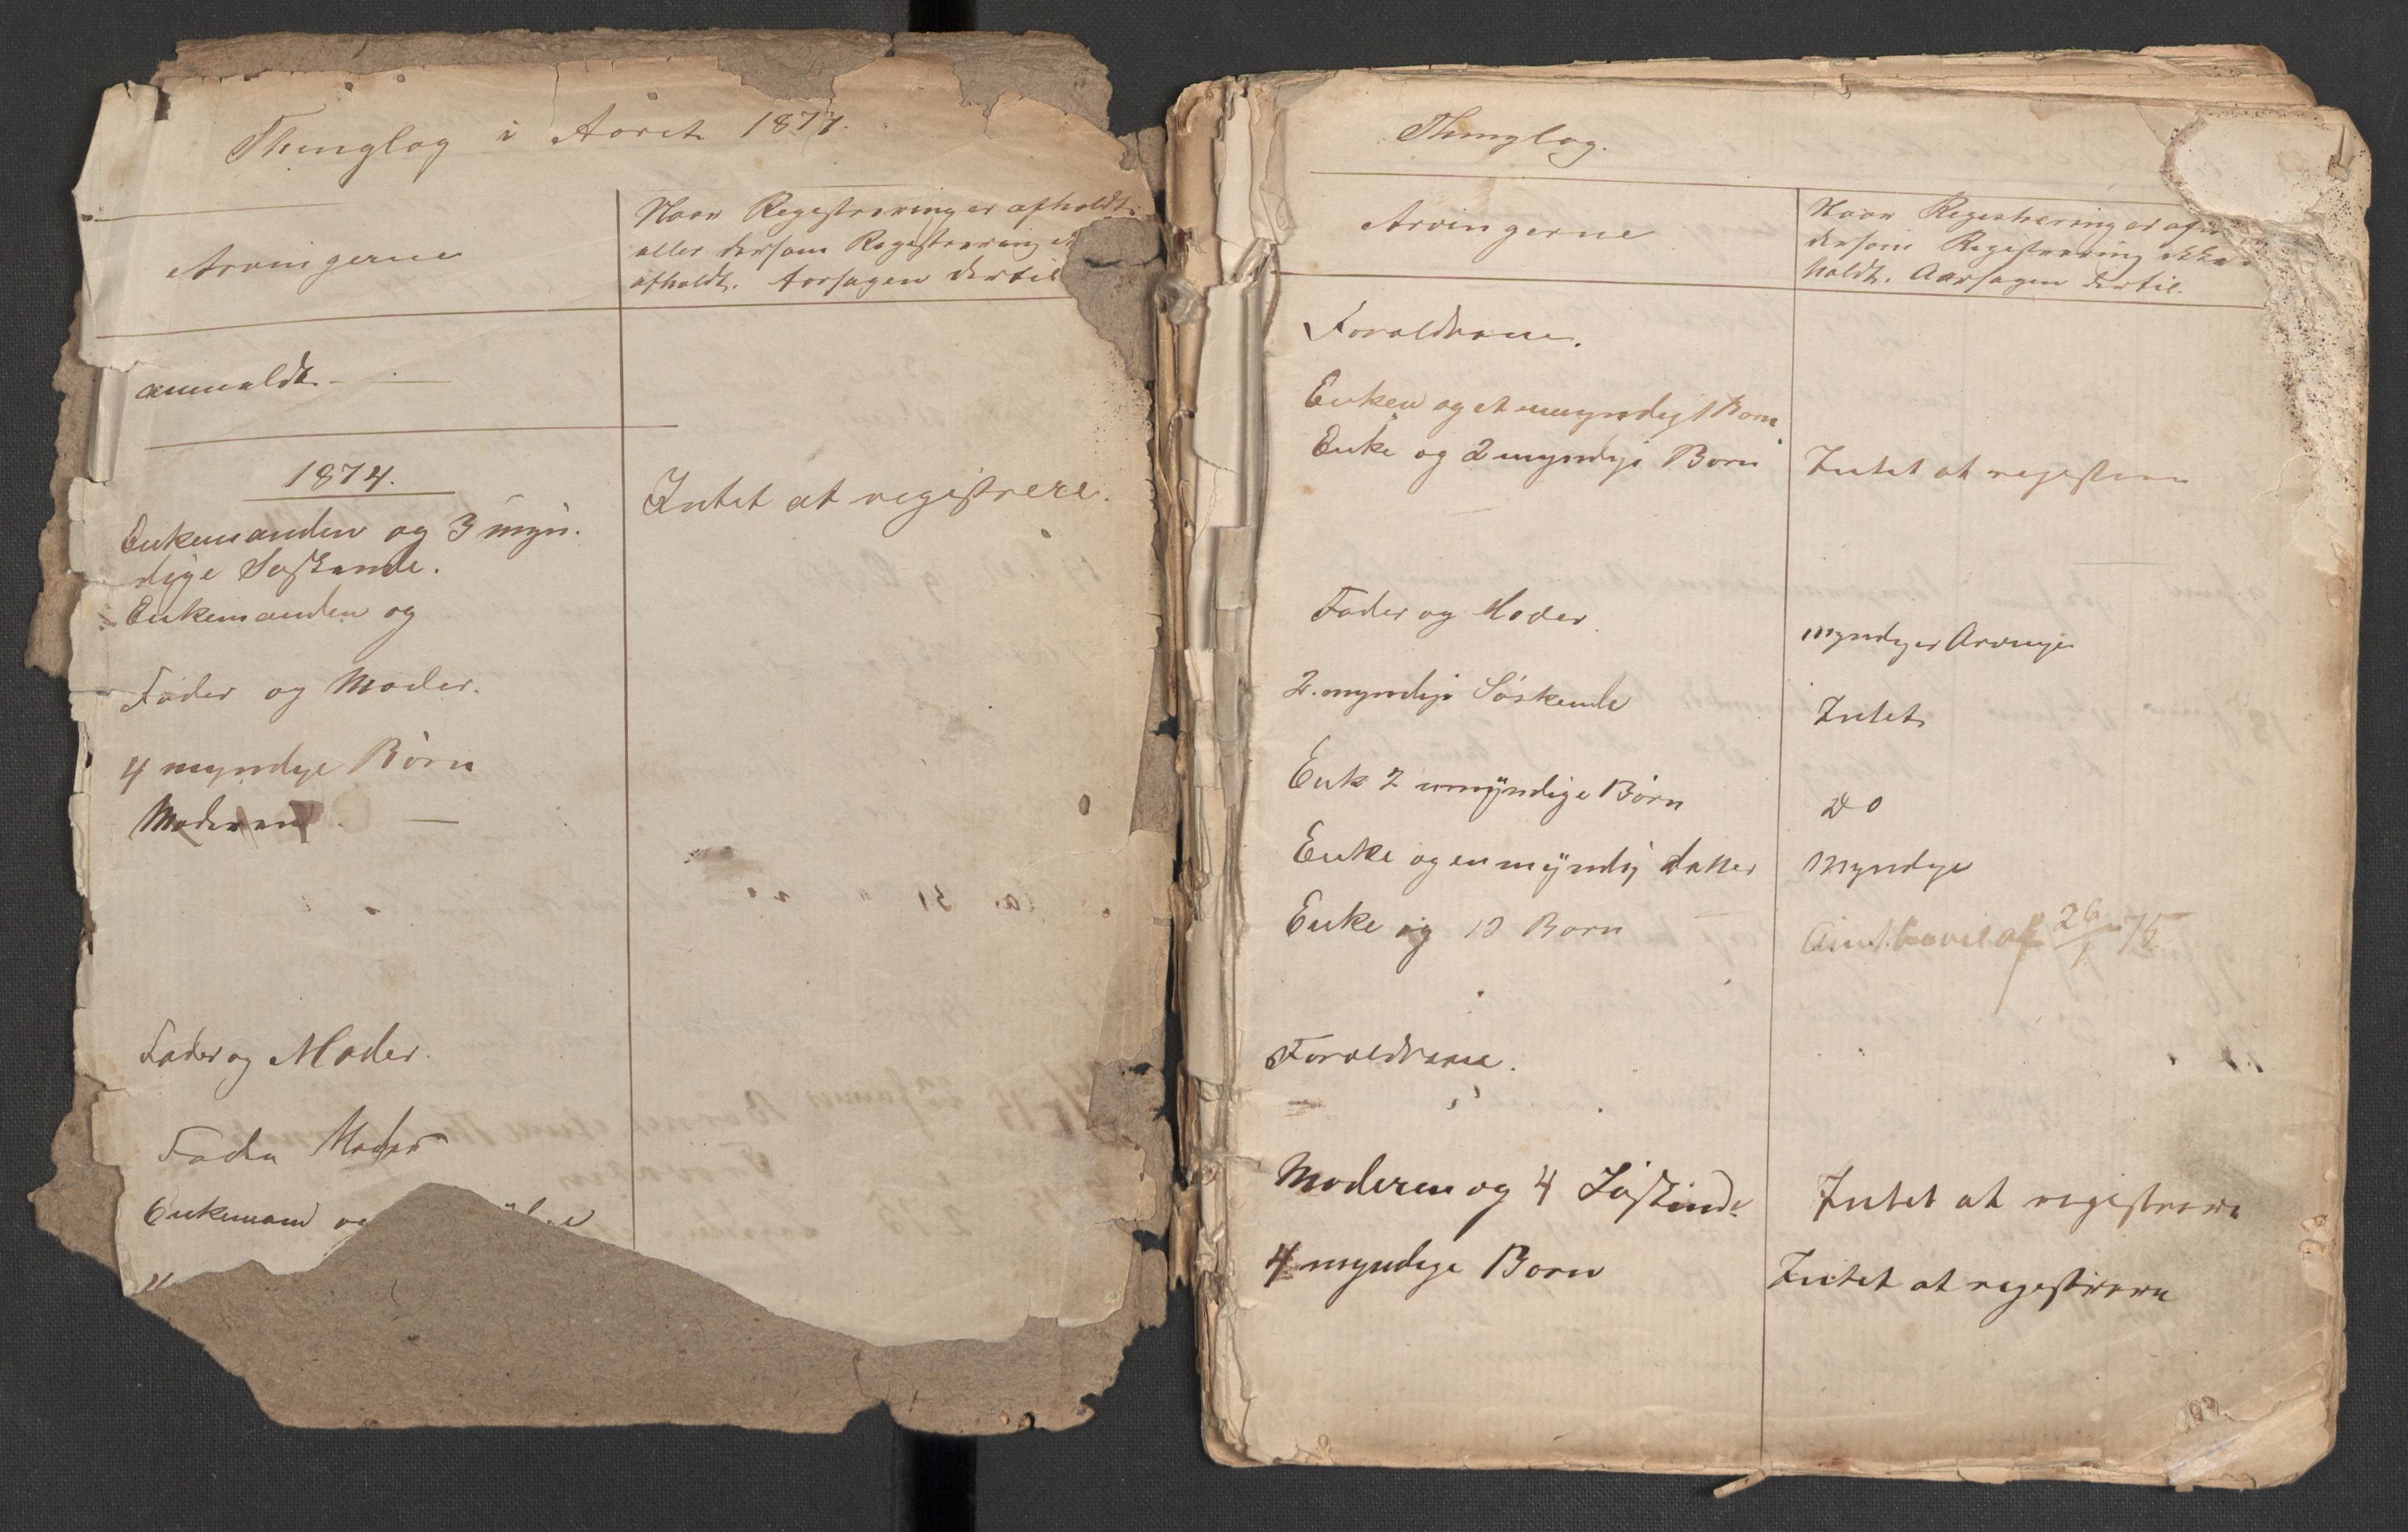 Thinglag i Aaret 1877.
Arvingerne
Naar Registrering er afholdt.
eller dersom Registrering
afholdt. Aarsagen dertil
anmeldt.
1874.
Enkemanden og 3 myn.
dige Søskende.
Intet at registrere.
Enkemanden og
Fader og Moder.
4 myndige Börn
Moderen
Fader og Moder.
Fader Moder
Enkemand og
Thinglag.
Arvingerne
Naar Registrering er
dersom Registrering ikke
holdt. Aarsagen dertil.
Forældrene.
Enken og et umyndigt Barn
Enke og 2 myndige Børn
Intet at registrere
Fader og Moder
myndige Arvinge
2. myndige Söskende
Intet
Enk 2 umÿndige Börn
Do
Enke og en mÿndig datter
Myndige
Enke og 10 Born
Amtbevil af 26/1 75
Forældrene.
Moderen og 4 Søskende
Intet at registrere
4 myndige Born
Intet at registrere